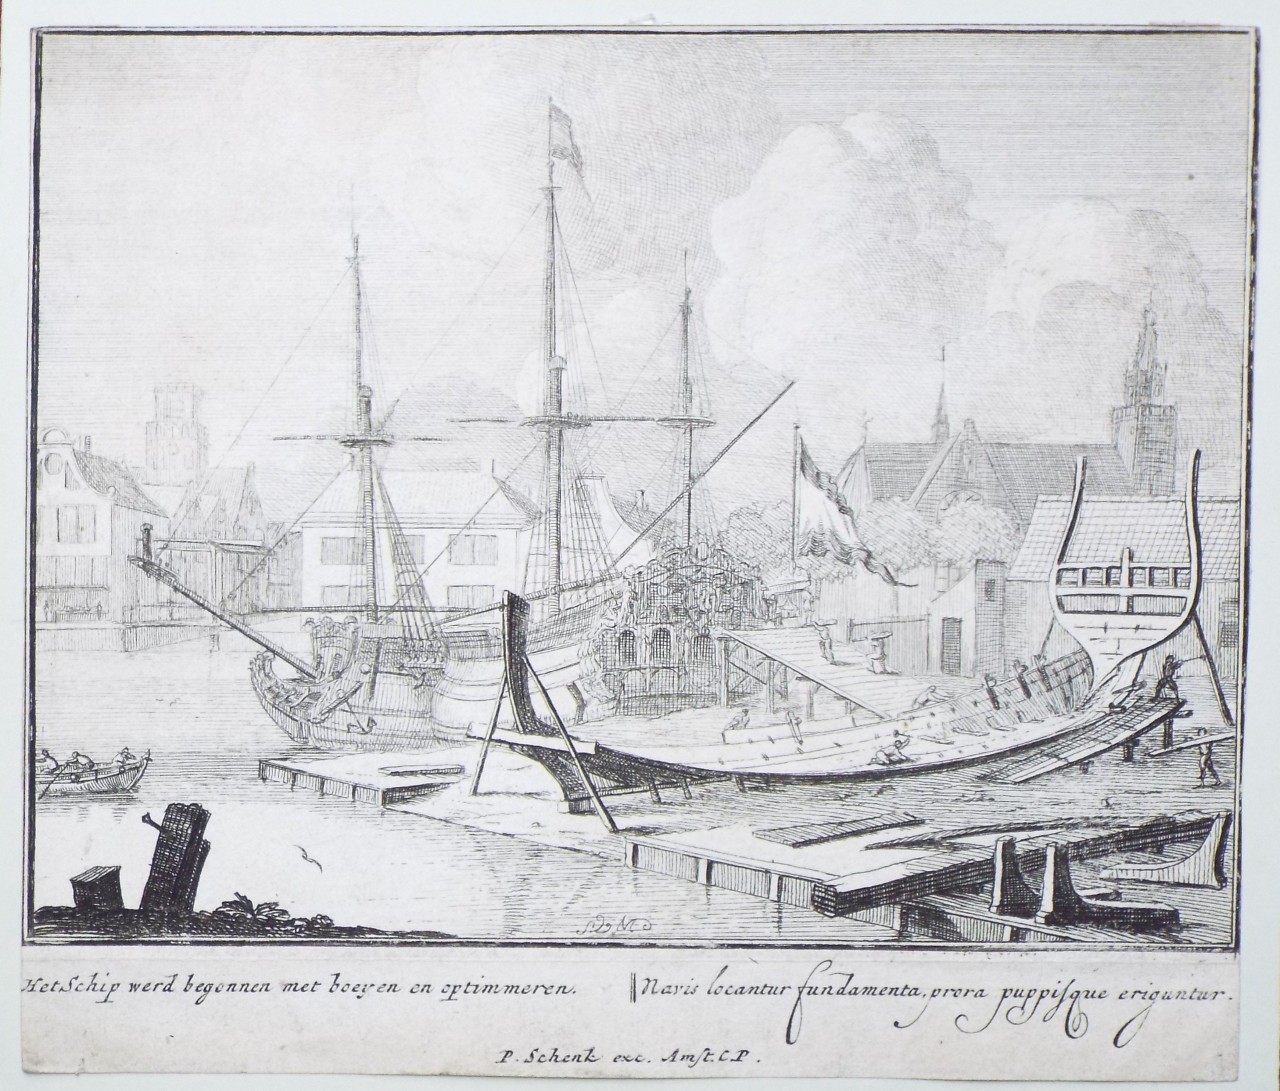 Het Schip werd begonnen met boeyen en optimmeren.
Navis locantur fundamenta, prora puppisque eriguntur.
P. Schenk exc. Amst. C.P.